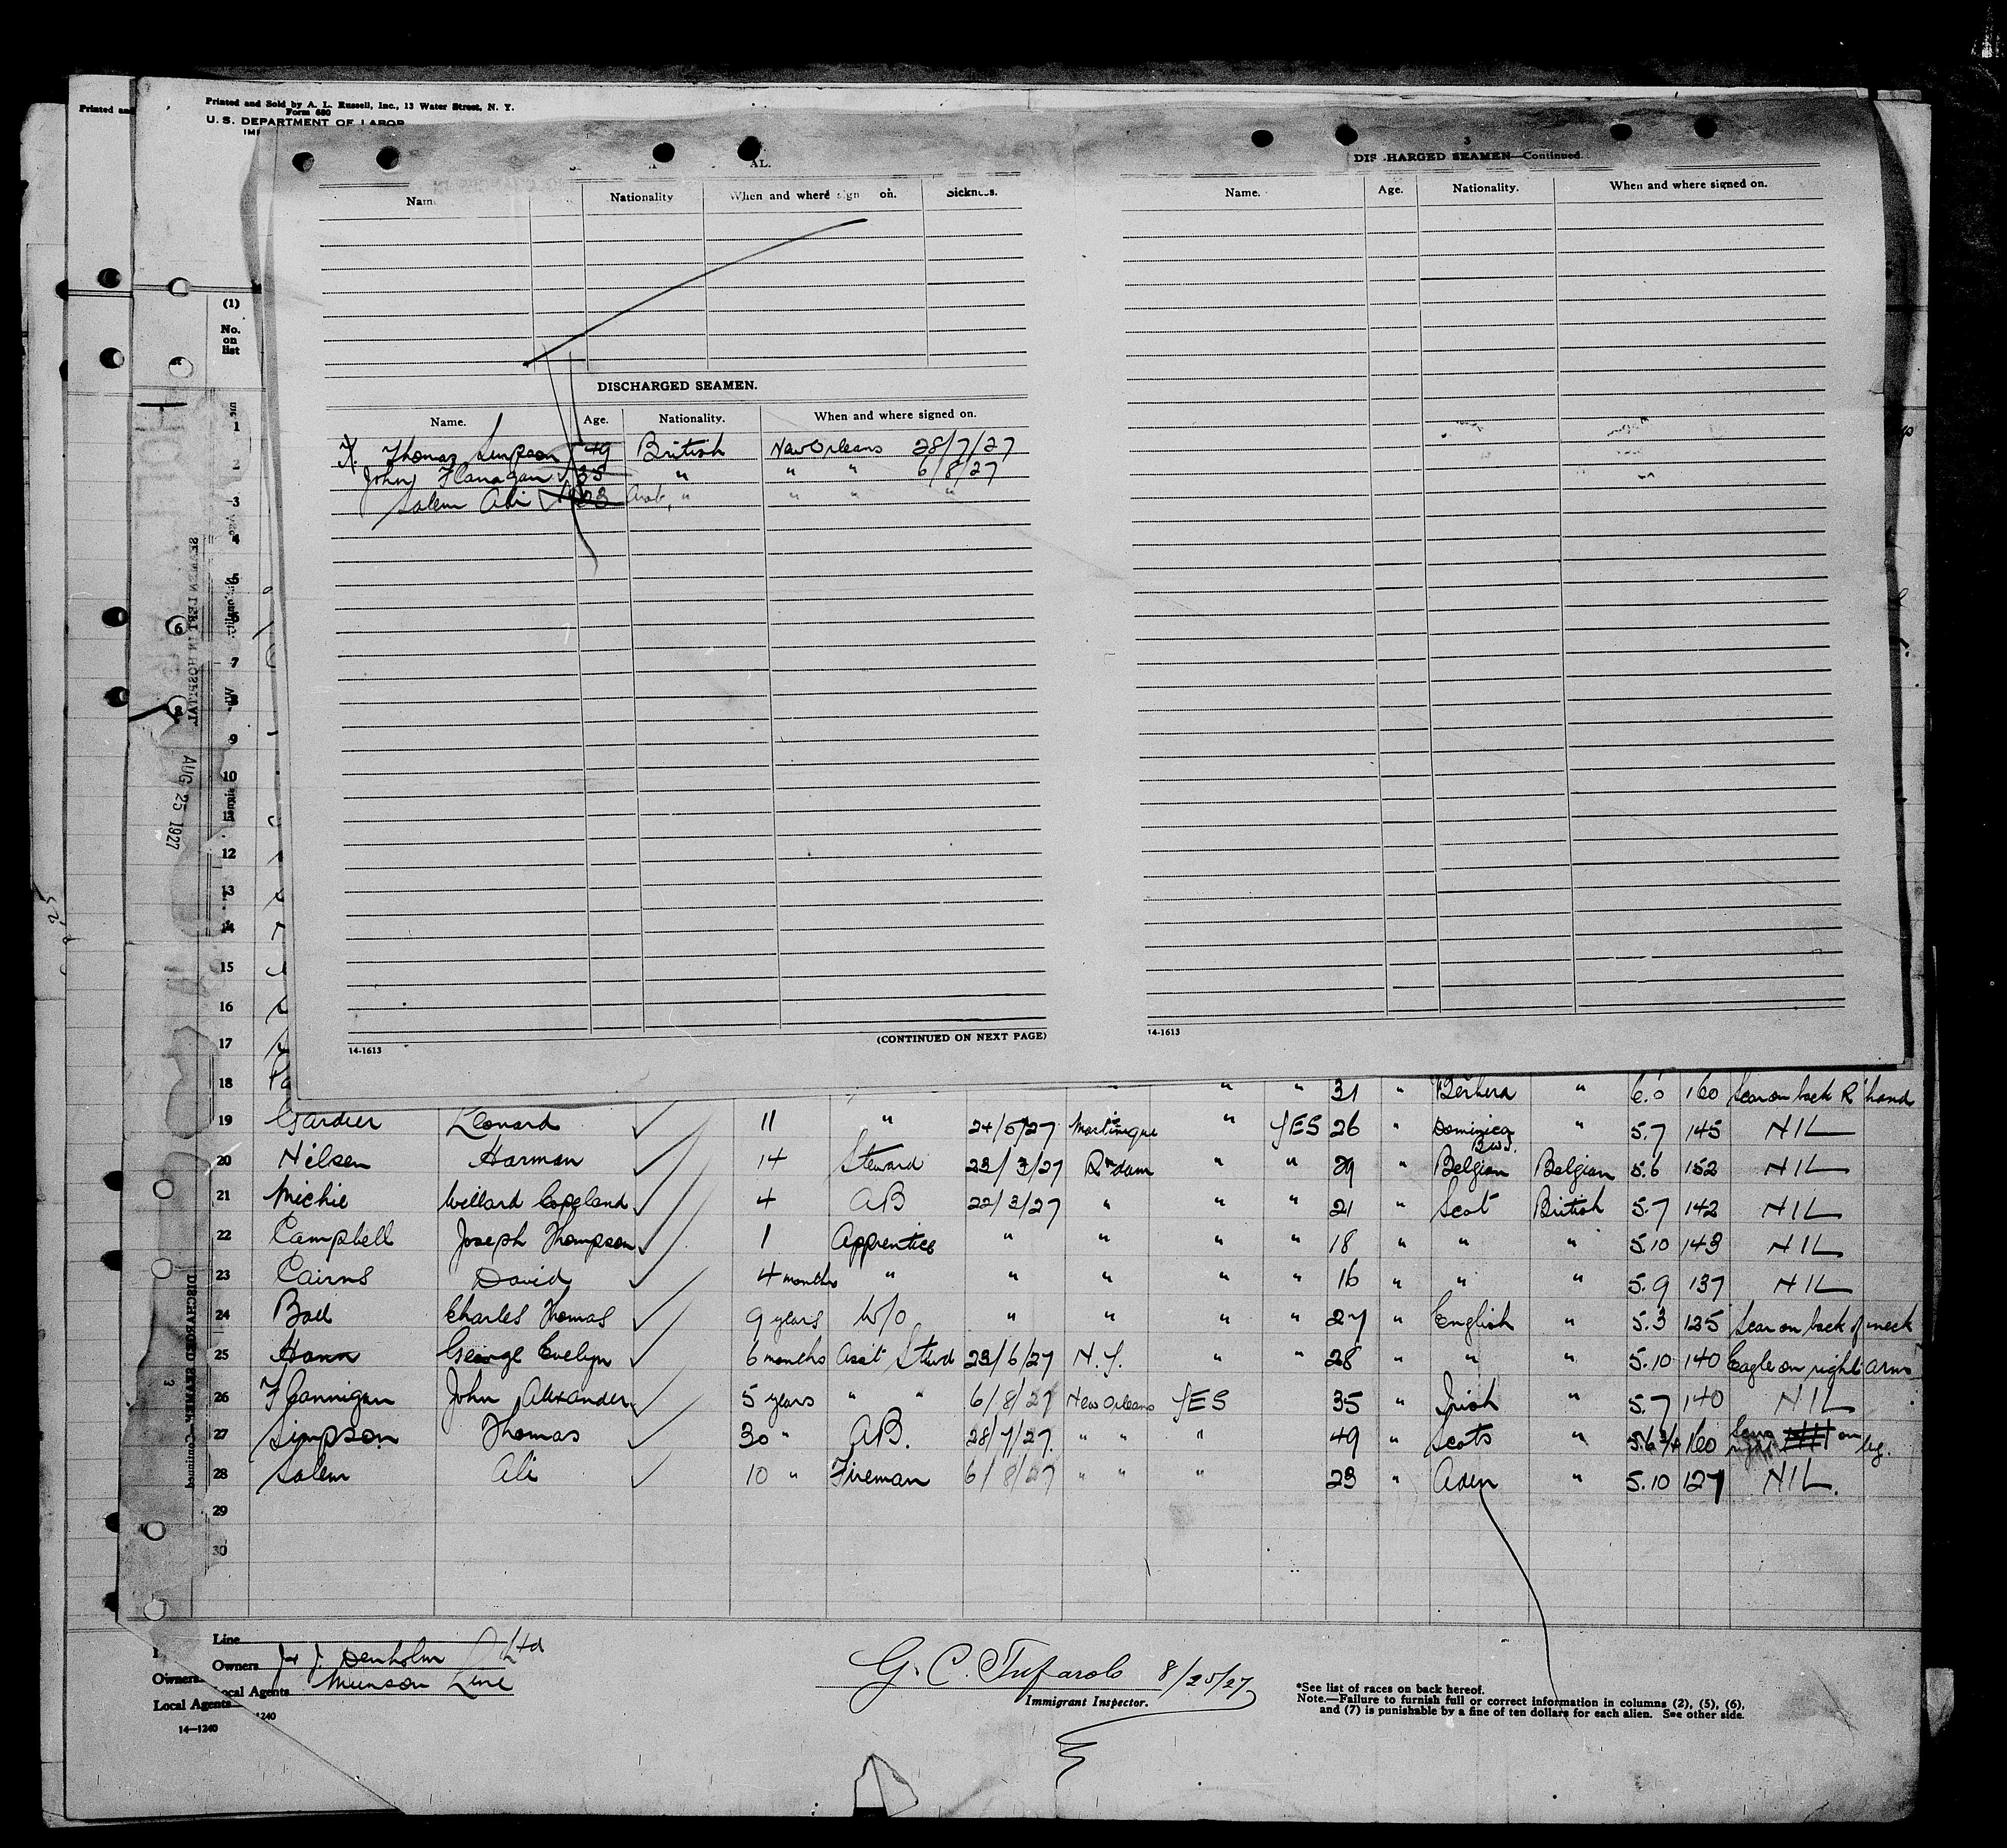 Printed and
Printed and Sold by A. L. Russell, Inc., 13 Water Street, N. Y.
Form 680
U. S. DEPARTMENT OF LABOR
AL.
Nationality When and where sign on. Sickness.
3
DIS HARGED SEAMEN—Continued.
Name. Age. Nationality. When and where signed on.
DISCHARGED SEAMEN.
Name. Age. Nationality. When and where signed on.
Thomas Simpson 49 British New Orleans 28/7/27
John Flanagan 35 " " " 6/8/27
Salem Ali 23 Arab " " " "
(CONTINUED ON NEXT PAGE)
14-1613
14-1613
(1)
No.
on
list
1
2
3
4
5
6
7
8
9
10
11
12
13
14
15
16
17
SEAMEN LEFT IN HOSPITAL
AUG 25 1927
DISCHARGED SEAMEN—Continued
3
18 " " " 31 " Berbera " 6.0 160 Scar on back R hand
19 Gardier Leonard 11 " 24/5/27 Martinique " YES 26 " Dominica B.W.I. " 5.7 145 NIL
20 Nilsen Harman 14 Steward 23/3/27 R'dam " " 29 " Belgian Belgian 5.6 152 NIL
21 Michie Willard Copeland 4 AB 22/3/27 " " " 21 " Scot British 5.7 142 NIL
22 Campbell Joseph Thompson 1 Apprentice " " " " 18 " " " 5.10 143 NIL
23 Cairns David 4 months " " " " " 16 " " " 5.9 137 NIL
24 Charles Thomas 9 years W/O " " " " 27 " English " 5.3 125 Scar on back of neck
25 Hann George Evelyn 6 months Asst Stwd 23/6/27 N.Y. " " 28 " " " 5.10 140 Eagle on right arm
26 Flannigan John Alexander 5 years " " 6/8/27 New Orleans YES 35 " Irish " 5.7 140 NIL
27 Simpson Thomas 30 " AB. 28/7/27 " " " 49 " Scots " 5.6 3/4 160 on leg.
28 Salem Ali 10 " Fireman 6/8/27 " " " 23 " Aden " 5.10 127 NIL.
29
30
Line
Owners J & J. Denholm Ltd
Local Agents Munson Line
Owners
Local Agents
14—1240
1240
8/25/27
Immigrant Inspector.
*See list of races on back hereof.
Note.—Failure to furnish full or correct information in columns (2), (5), (6),
and (7) is punishable by a fine of ten dollars for each alien. See other side.